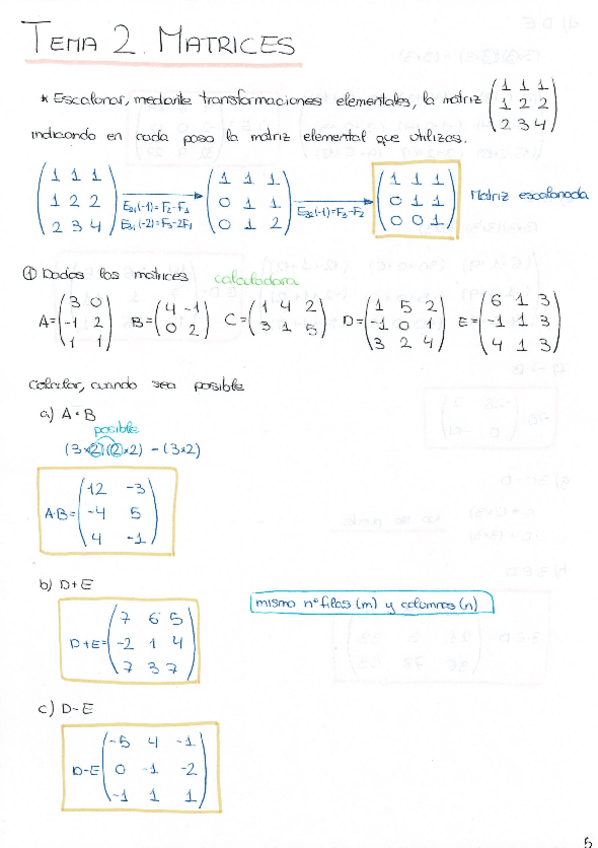 TEMA 2. MATRICES
* Escalonar, mediante transformaciones elementales, la matriz (1 1 1
1 2 2
2 3 4)
indicando en cada paso la matriz elemental que utilizas.
(1 1 1
1 2 2
2 3 4)
E21(-1)=F2-F1
E31(-2)=F3-2F1
(1 1 1
0 1 1
0 1 2)
E32(-1)=F3-F2
(1 1 1
0 1 1
0 0 1)
Matriz escalonada
① Dadas las matrices calculadora
A=(3 0
-1 2
1 1)
B=(4 -1
0 2)
C=(1 4 2
3 1 5)
D=(1 5 2
-1 0 1
3 2 4)
E=(6 1 3
-1 1 3
4 1 3)
Calcular, cuando sea posible
a) A·B
posible
(3x2)(2x2) - (3x2)
A·B=(12 -3
-4 5
4 -1)
b) D+E
mismo nº filas (m) y columnas (n)
D+E=(7 6 5
-2 1 4
7 3 7)
c) D-E
D-E(-5 4 -1
0 -1 -2
-1 1 1)
5